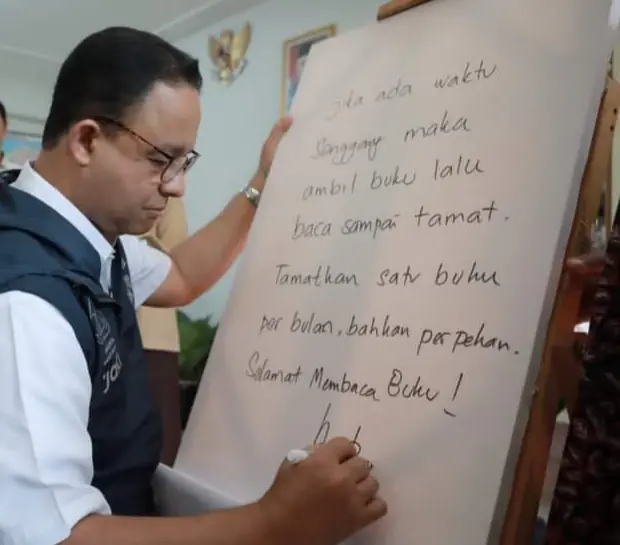 jika ada waktu
senggang maka
ambil buku lalu
baca sampai tamat.
Tamatkan satu buku
per bulan, bahkan per pekan.
Selamat Membaca Buku!